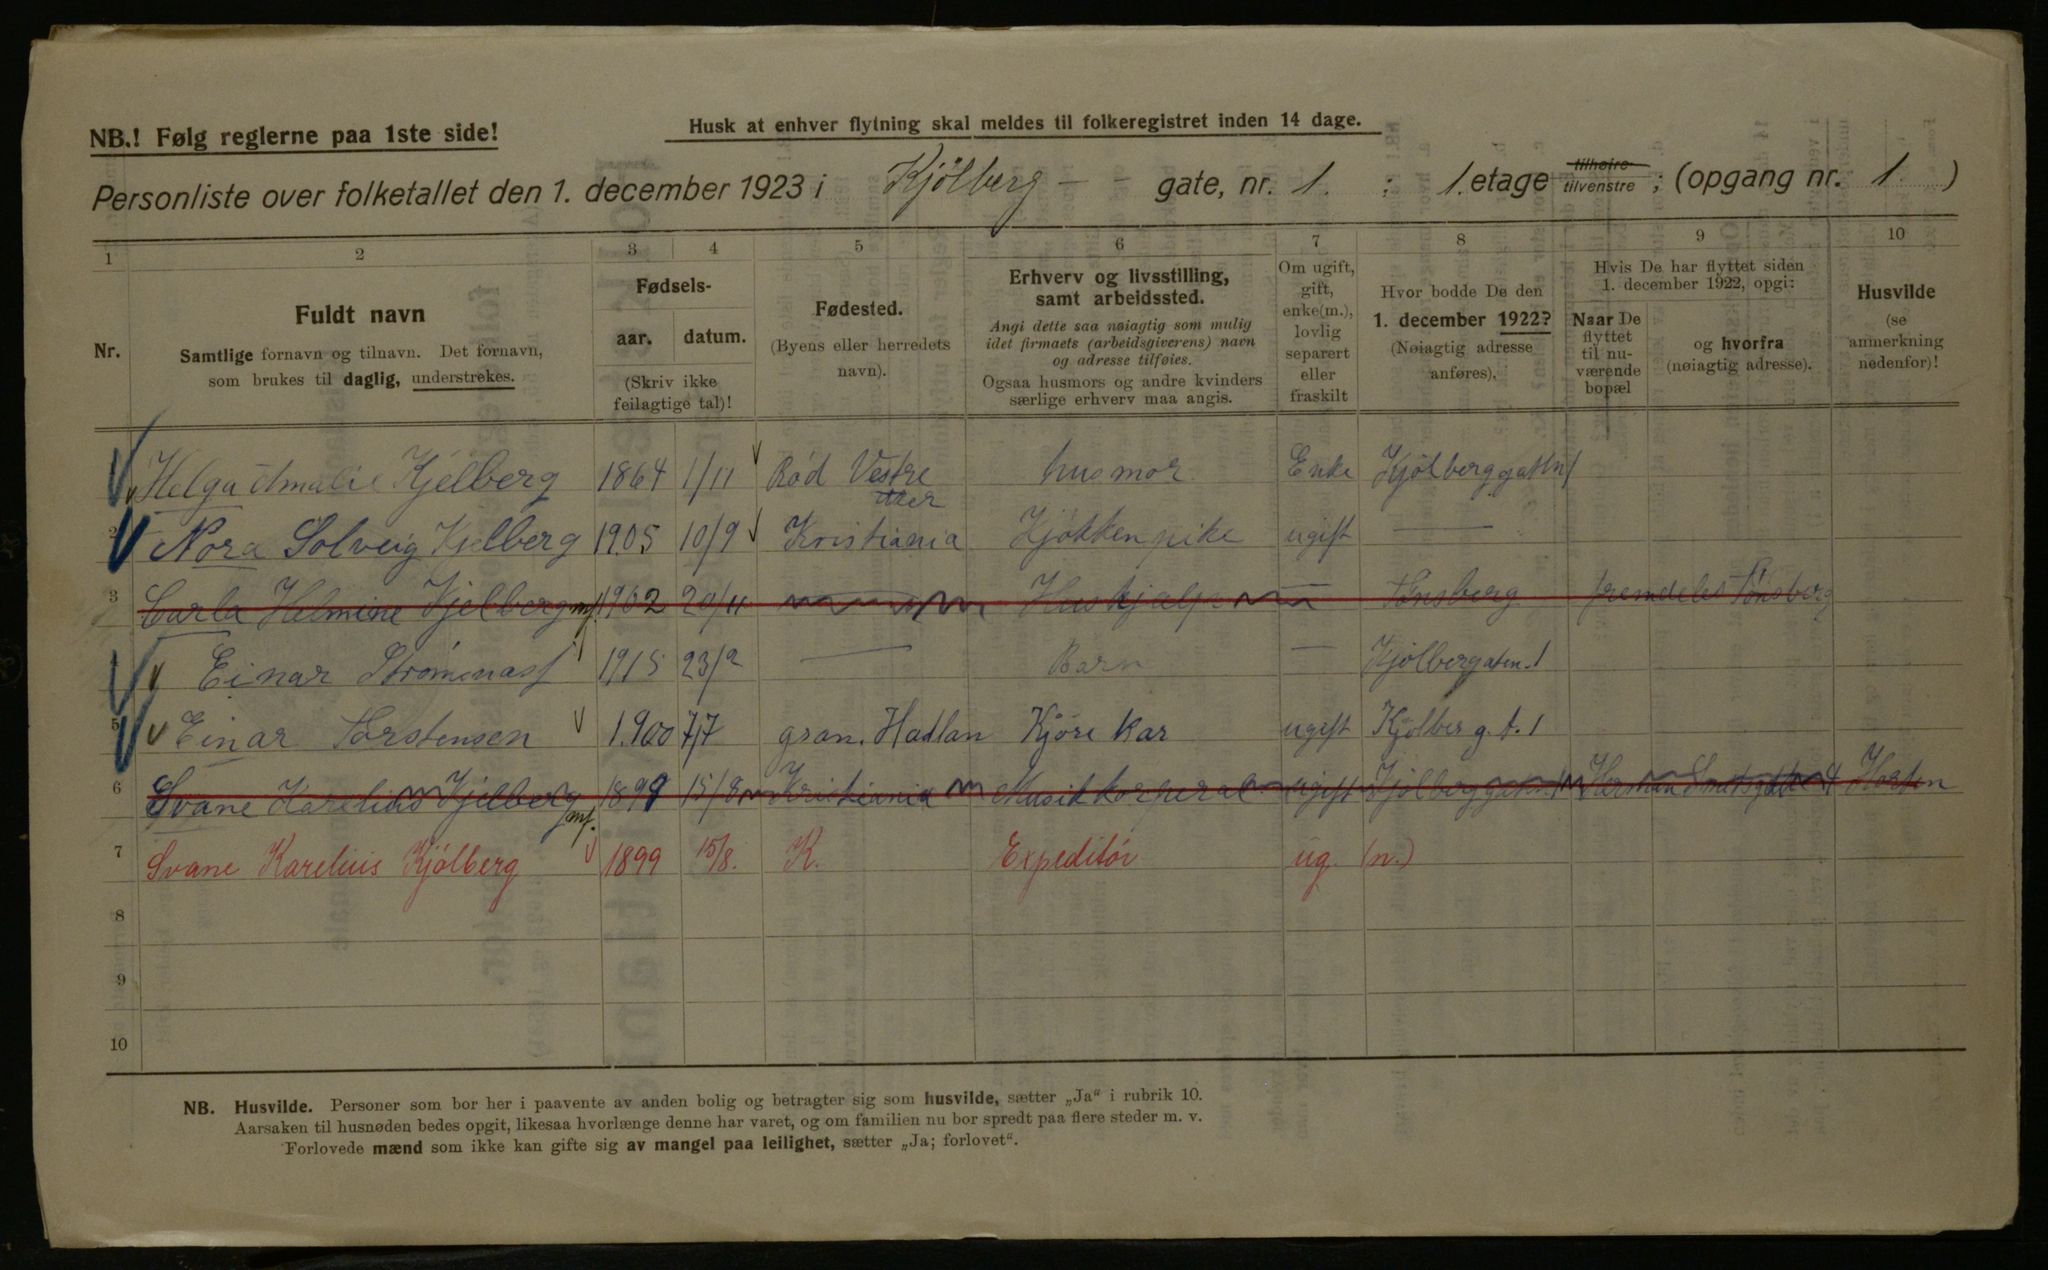 NB.! Følg reglerne paa 1ste side!
Husk at enhver flytning skal meldes til folkeregistret inden 14 dage.
Personliste over folketallet den 1. december 1923 i Kjölberg - - gate, nr. 1. ; 1. etage tilhøire tilvenstre ; (opgang nr. 1 )
1 2 3 4 5 6 7 8 9 10
Nr.
Fuldt navn
Samtlige fornavn og tilnavn. Det fornavn,
som brukes til daglig, understrekes.
Fødsels-
aar. datum.
(Skriv ikke
feilagtige tal)!
Fødested.
(Byens eller herredets
navn).
Erhverv og livsstilling,
samt arbeidssted.
Angi dette saa nøiagtig som mulig
idet firmaets (arbeidsgiverens) navn
og adresse tilføies.
Ogsaa husmors og andre kvinders
særlige erhverv maa angis.
Om ugift,
gift,
enke(m.),
lovlig
separert
eller
fraskilt
Hvor bodde De den
1. december 1922?
(Nøiagtig adresse
anføres).
Hvis De har flyttet siden
1. december 1922, opgi:
Naar De
flyttet
til nu-
værende
bopæl
og hvorfra
(nøiagtig adresse).
Husvilde
(se
anmerkning
nedenfor)!
Helga Amalie Kjelberg 1864 1/11 Rød Vestre husmor Enke
2 Nora Solveig Kjelberg 1905 10/9 Kristiania Kjøkkenpike ugift —
3 Carla Helmine Kjelberg 1902 20/11 Hushjalp — Tønsberg fremdeles Tønsberg
Einar 1915 23/2 — Barn — Kjölbergaten. 1
5 Einar Torstensen 1.900 7/7 gran. Hadlan Kjöre kar ugift Kjølber g. t. 1
6 Svane Karelius Kjelberg 1899 15/8 Kristiania Musikkorperal ugift Horten
7 Svane Karelius Kjölberg 1899 15/8. K. Expeditör ug. (n.)
8
9
10
NB. Husvilde. Personer som bor her i paavente av anden bolig og betragter sig som husvilde, sætter „Ja“ i rubrik 10.
Aarsaken til husnøden bedes opgit, likesaa hvorlænge denne har varet, og om familien nu bor spredt paa flere steder m. v.
Forlovede mænd som ikke kan gifte sig av mangel paa leilighet, sætter „Ja; forlovet“.